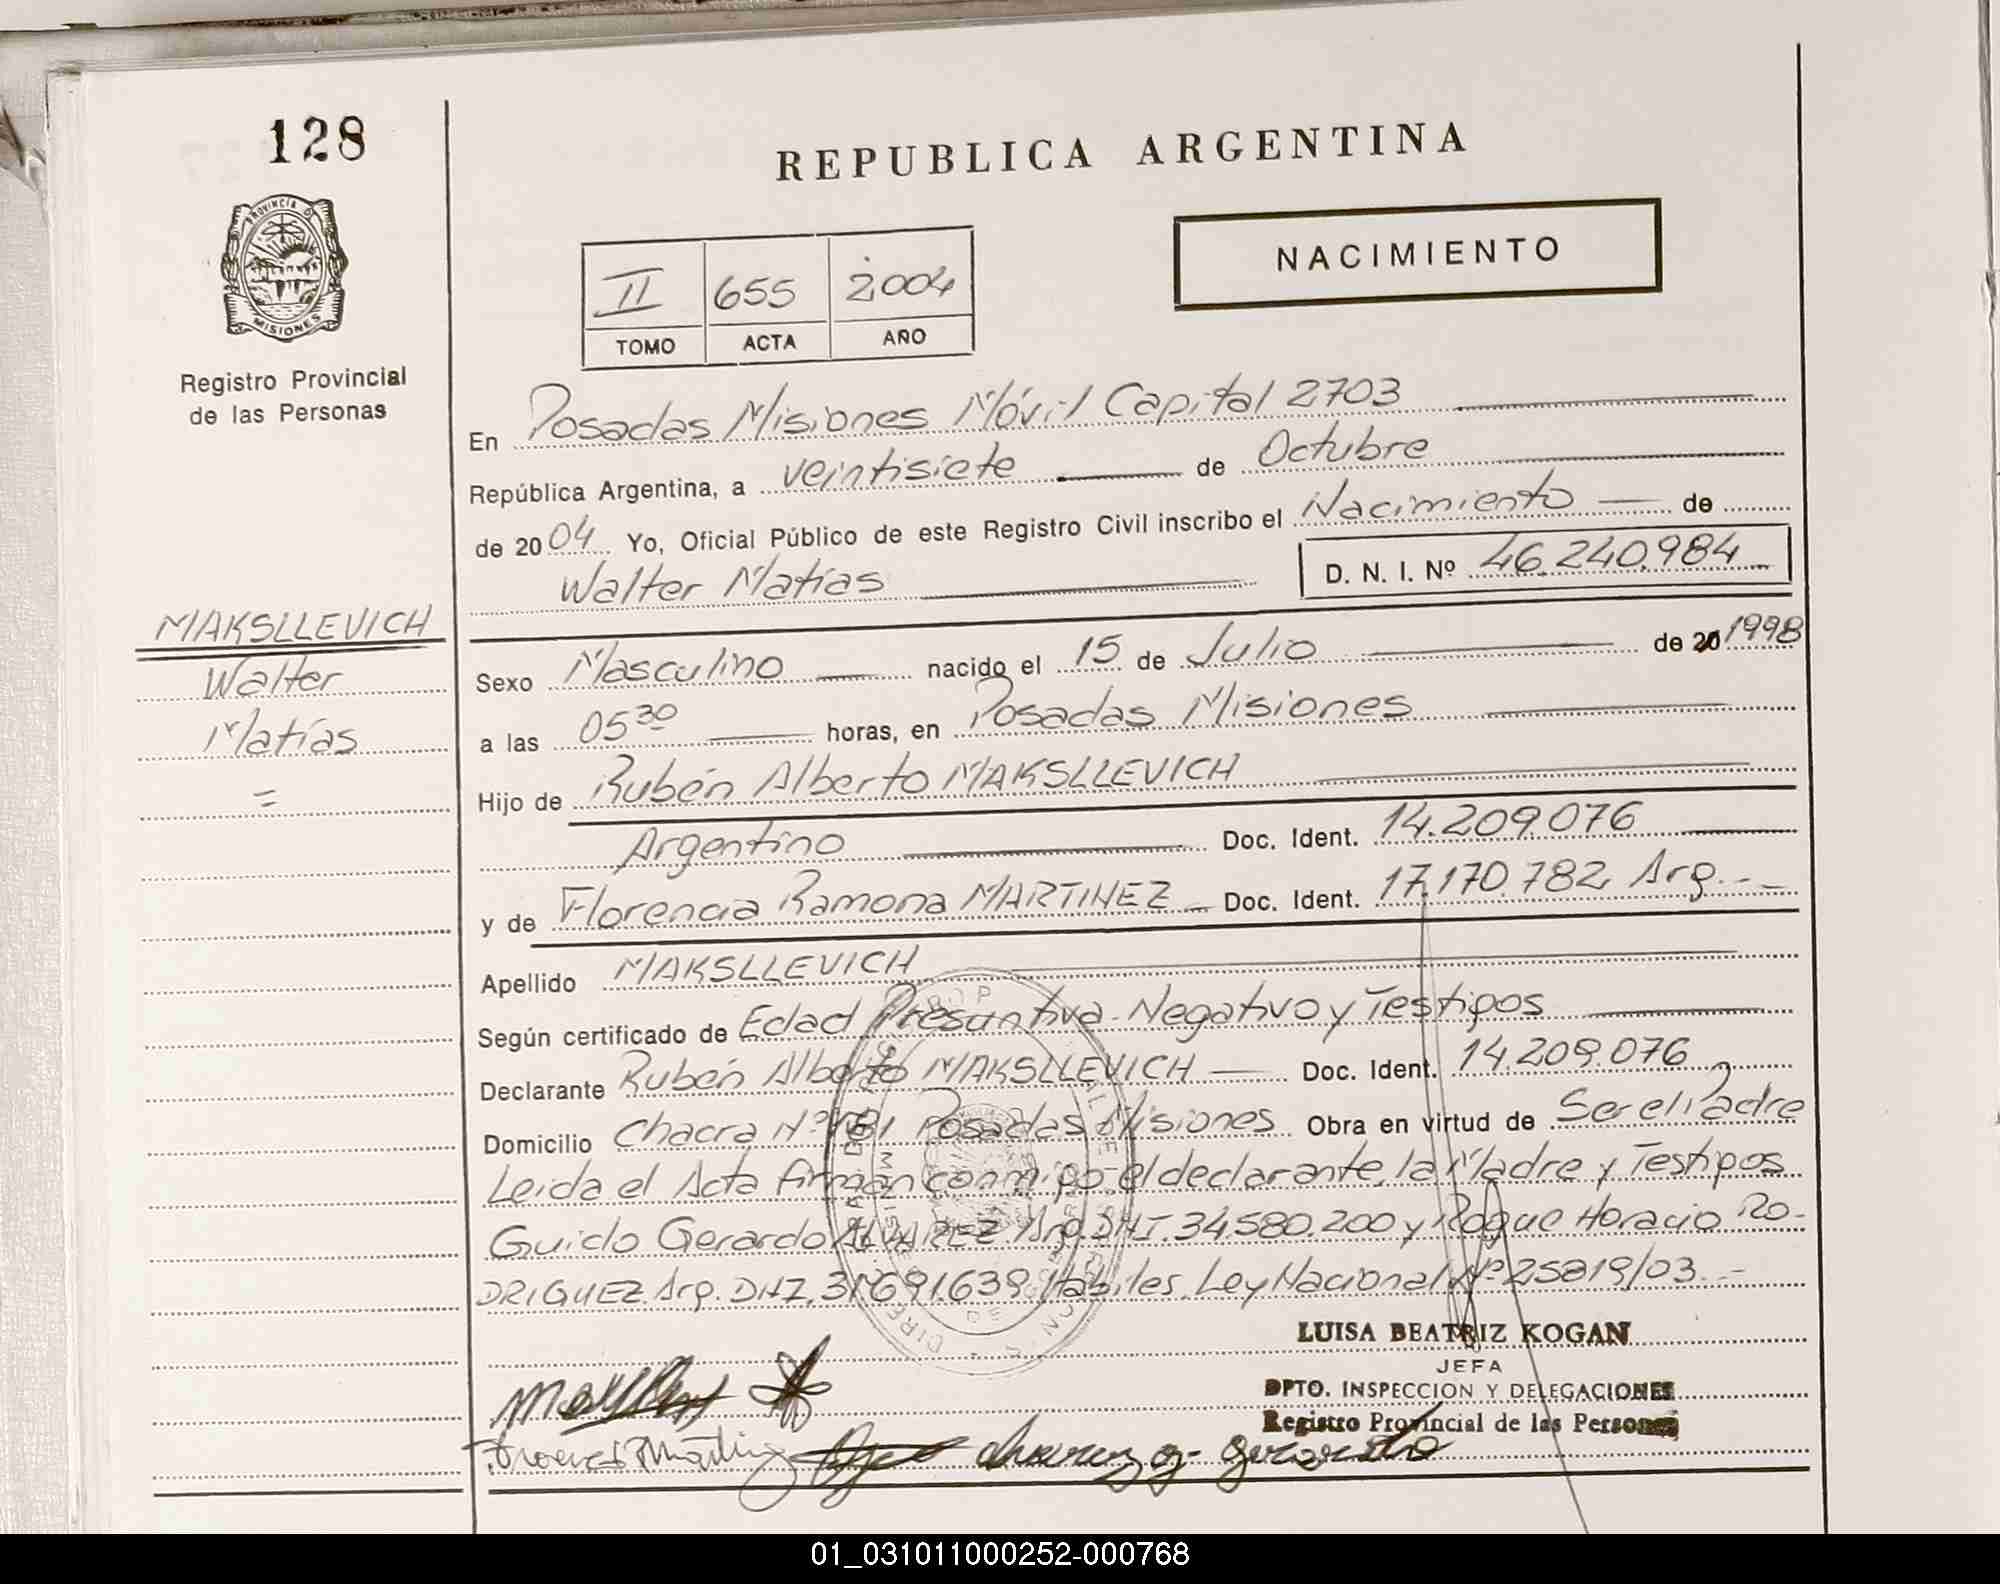 128
REPUBLICA ARGENTINA
PROVINCIA D
MISIONES
Registro Provincial
de las Personas
II 655 2004
TOMO ACTA AÑO
NACIMIENTO
En Posadas Misiones Móvil Capital 2703
República Argentina, a veintisiete de Octubre
de 2004 Yo, Oficial Público de este Registro Civil inscribo el Nacimiento de
Walter Matías D. N. I. Nº 46.240.984
MAKSLLEVICH
Walter
Matías
=
Sexo Masculino nacido el 15 de Julio de 20 1998
a las 05 30 horas, en Posadas Misiones
Hijo de Rubén Alberto MAKSLLEVICH
Argentino Doc. Ident. 14.209.076
y de Florencia Ramona MARTINEZ Doc. Ident. 17.170.782 Arg.
Apellido MAKSLLEVICH
Según certificado de Edad Presuntiva Negativo y Testigos
Declarante Rubén Alberto MAKSLLEVICH Doc. Ident. 14.209.076
Domicilio Chacra Nº 181 Posadas Misiones Obra en virtud de Ser el Padre
Leida el Acta firman conmigo el declarante, la Madre y Testigos
Guido Gerardo ALVAREZ Arg. DNI. 34.580.200 y Roque Horacio RO-
DRIGUEZ Arg. DNI. 31.691.639 Habiles. Ley Nacional Nº 25819/03.-
LUISA BEATRIZ KOGAN
JEFA
DPTO. INSPECCION Y DELEGACIONES
Registro Provincial de las Personas
01_031011000252-000768